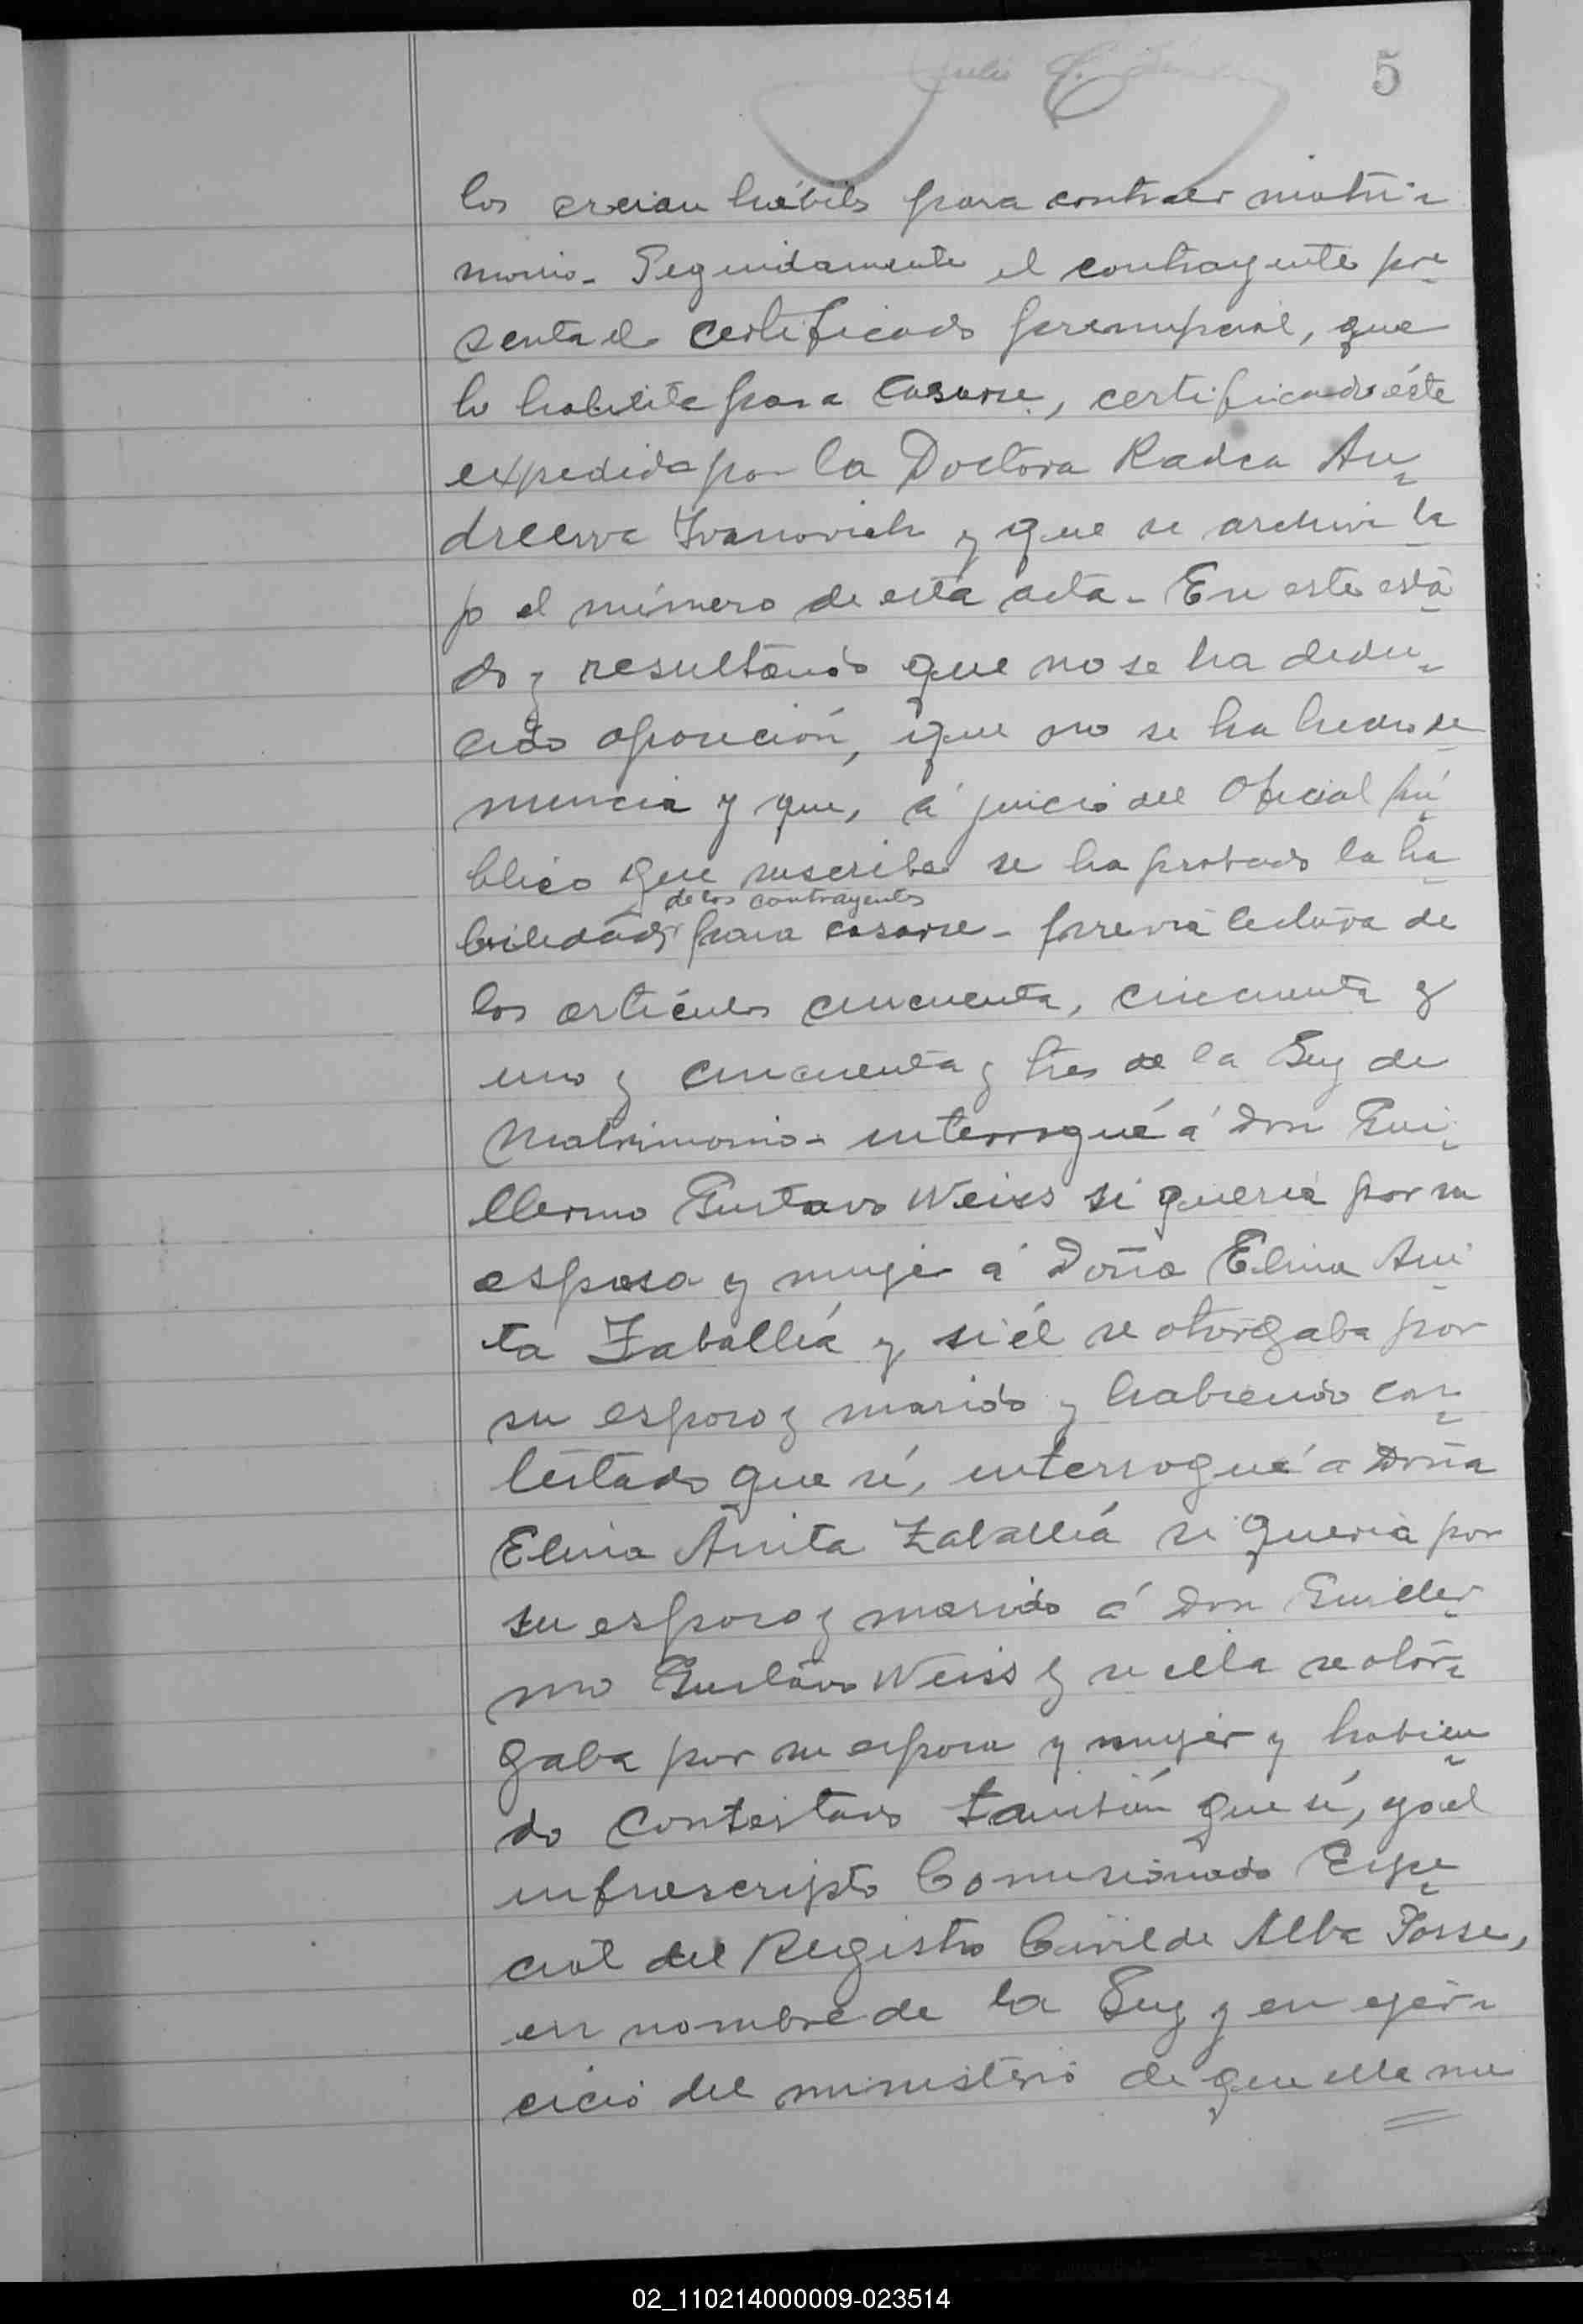 5
los creian hábiles para contraer matri-
monio- Seguidamente el contrayente pre-
senta el certificado prenupcial, que
lo habilita para casarse, certificado éste
expedido por la Doctora Radca An-
dreewa Ivanovich y que se archiva ba-
jo el número de esta acta- En este esta-
do y resultando que no se ha dedu-
cido oposición, que no se ha hecho de-
nuncia y que, á juicio del Oficial pú-
blico que suscribe se ha probado la ha-
de los contrayentes
bilidad para casarse- previa lectura de
los artículos cincuenta, cincuenta y
uno y cincuenta y tres de la Ley de
Matrimonio- interrogué á Don Gui-
llermo Gustavo Weiss si queria por su
esposa y mujer á Doña Elina Ani-
ta Zaballiá y si él se otorgaba por
su esposo y marido y habiendo con-
testado que sí, interrogué a Doña
Elina Anita Zaballiá si queria por
su esposo y marido á Don Guiller-
mo Gustavo Weiss y si ella se otor-
gaba por su esposa y mujer y habien-
do contestado también que sí, yo el
infrascripto Comisionado Espe-
cial del Registro Civil de Alba Posse,
en nombre de la Ley y en ejer-
cicio del ministerio de que ella me
02_110214000009-023514